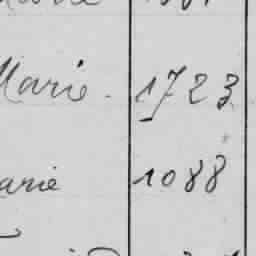 Marie. 1723
arie 1088